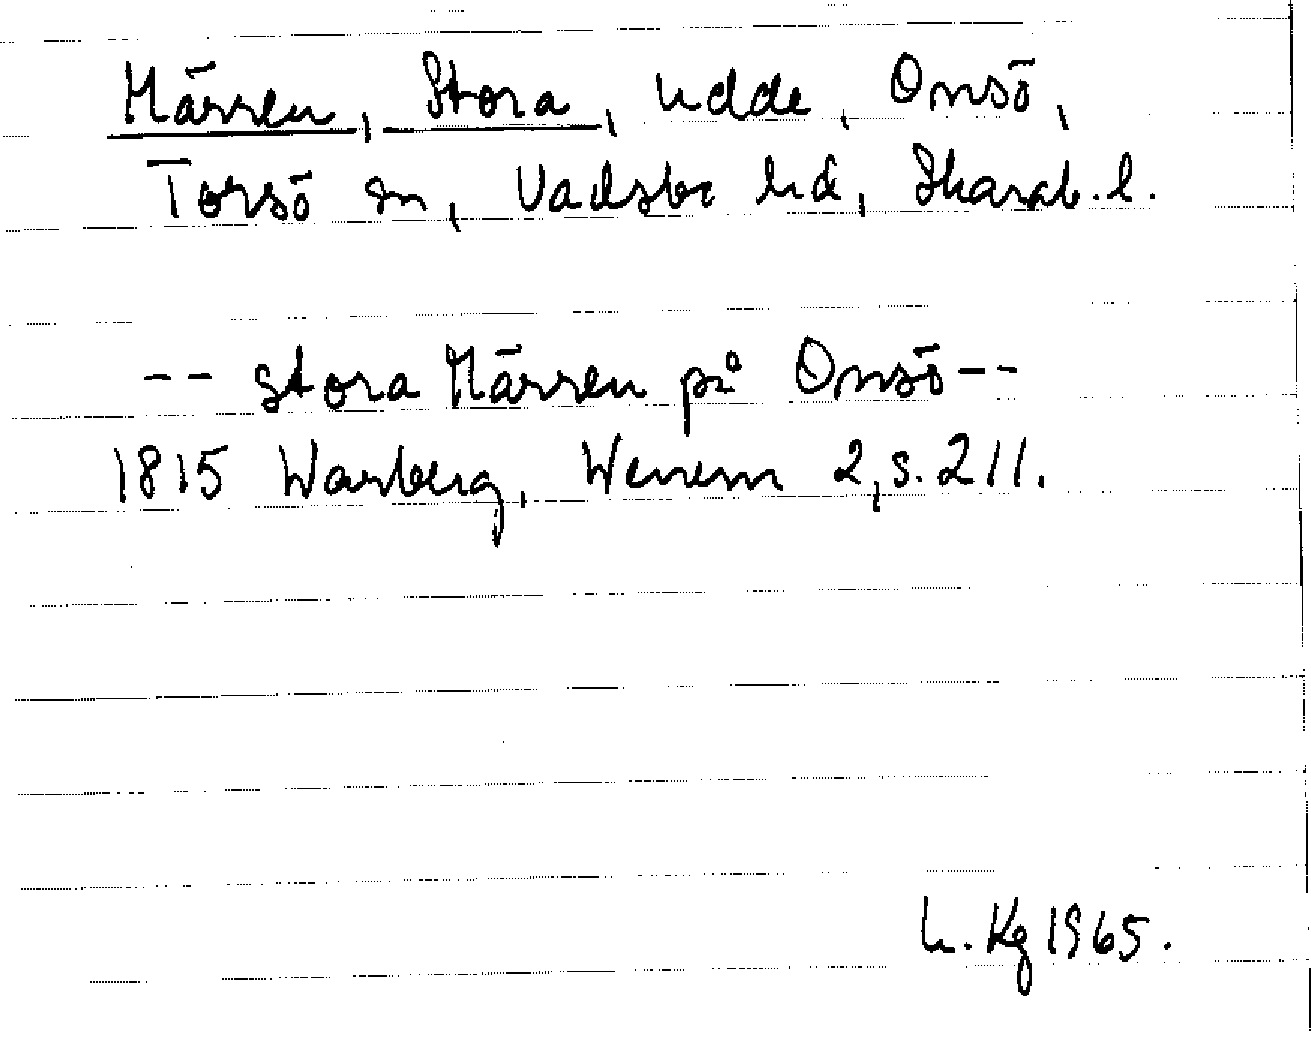 Märren, Stora, udde, Onsö,
Torsö sn, Vadsbo hd, Skarab. l.
-- stora Märren på Onsö --
1815 Warberg, Wenern 2, s. 211.
L. Kg 1965.